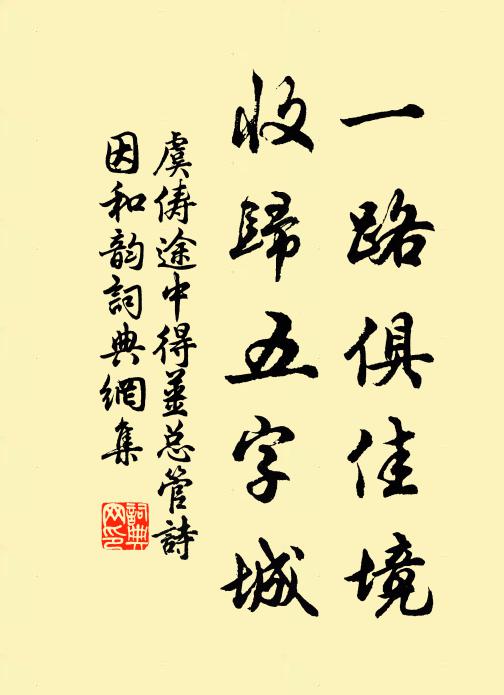 一路俱佳境
收歸五字城
虞俦途中得姜总管詩
因和韵詞典網集
詞典
网印